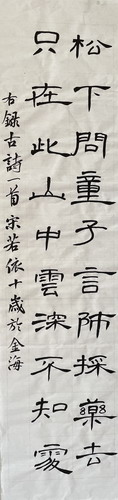 松下問童子言師採藥去
只在此山中雲深不知處
右録古詩一首宋若依十歲於金海